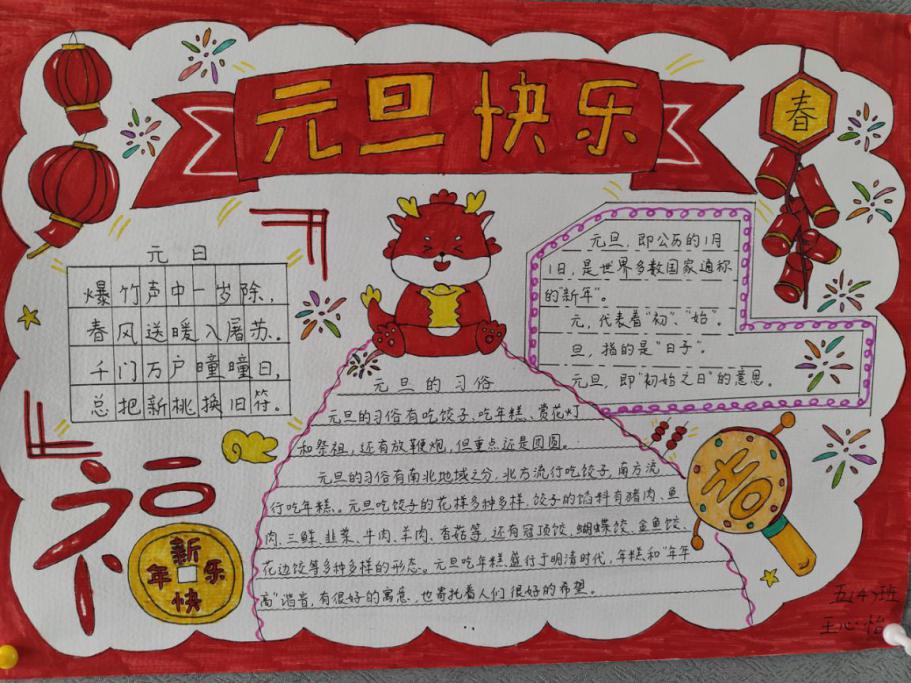 元旦快乐
春
元日
爆竹声中一岁除，
春风送暖入屠苏。
千门万户曈曈日，
总把新桃换旧符。
元旦，即公历的1月
1日，是世界多数国家通称
的"新年"。
元，代表着"初"、"始"。
旦，指的是"日子"。
元旦，即"初始之日"的意思。
元旦的习俗
元旦的习俗有吃饺子、吃年糕、赏花灯
和祭祖，还有放鞭炮，但重点还是团圆。
元旦的习俗有南北地域之分，北方流行吃饺子，南方流
行吃年糕。元旦吃饺子的花样多种多样，饺子的馅料有猪肉、鱼
肉、三鲜、韭菜、牛肉、羊肉、香菇等，还有冠顶饺、蝴蝶饺、金鱼饺、
花边饺等多种多样的形态。元旦吃年糕盛行于明清时代，年糕和"年年
高"谐音，有很好的寓意，也寄托着人们很好的希望。
福
新年快乐
吉
五(4)班
王心怡